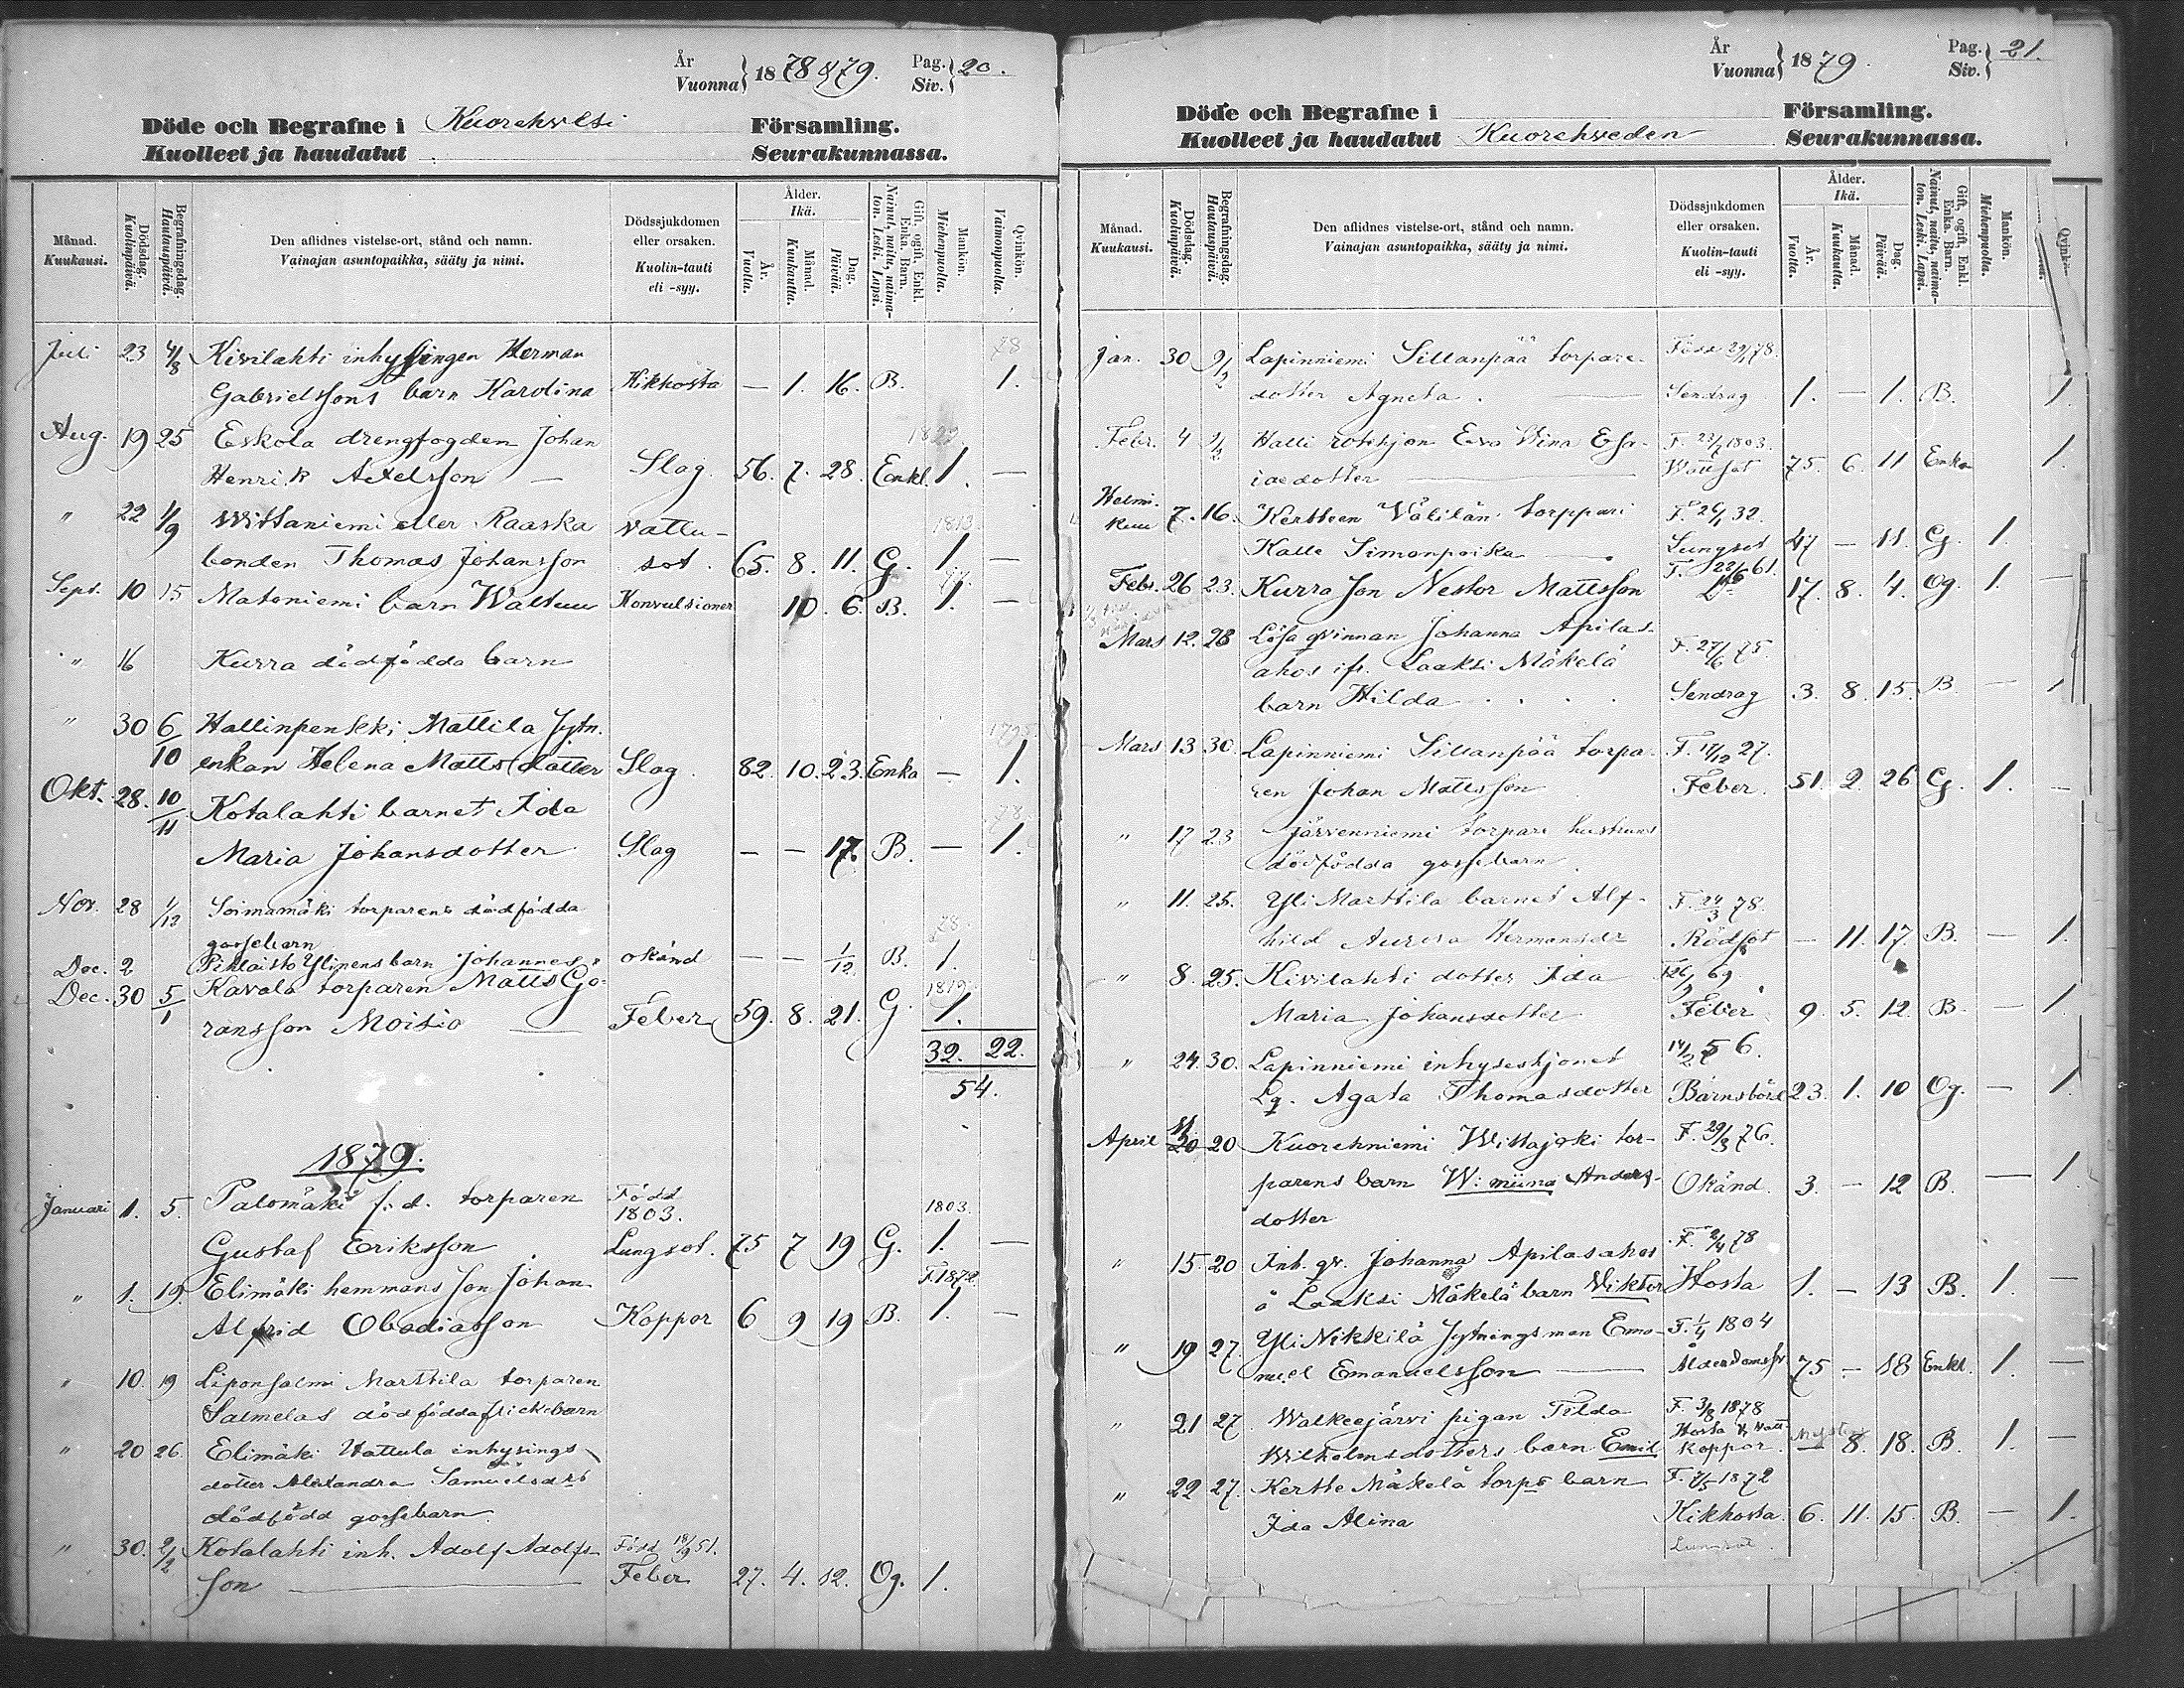 År
Vuonna } 1878 & 79. Pag. Siv. } 20.
Döde och Begrafne i Kuorehvesi Församling.
Kuolleet ja haudatut Seurakunnassa.
Månad. Kuukausi. Dödsdag. Kuolinpäivä. Begrafningsdag. Hautauspäivä. Den aflidnes vistelse-ort, stånd och namn. Vainajan asuntopaikka, sääty ja nimi. Dödssjukdomen eller orsaken. Kuolin-tauti eli -syy. Ålder. Ikä. År. Vuotta. Månad. Kuukautta. Dag. Päivää. Gift, ogift, Enkl. Enka. Barn. Nainut, naitu, naimaton. Leski. Lapsi. Mankön. Miehenpuolta. Qvinkön. Vaimonpuolta.
78
Juli 23 4/8 Kivilahti inhysingen Herman
Gabrielssons barn Karolina Kikhosta — 1. 16. B. 1.
Aug. 19 25 Eskola drengfogden Johan
Henrik Axelsson — Slag. 56. 7. 28. Enkl. 1. —
" 22 1/9 Wittaniemi eller Raaska Vattu- 1813
bonden Thomas Johansson sot. 65. 8. 11. G. 1. —
Sept. 10 15 Matoniemi barn Konvulsioner 10. 6. B. 1. —
" 16 Kurra dödfödda barn
" 30 6/10 Hallinpenkki Mattila Sytn. 1795
enkan Helena Mattsdotter Slag. 82. 10. 23. Enka — 1.
Okt. 28. 10/11 Kotalahti barnet Ida 78
Maria Johansdotter Slag — — 17. B. — 1.
Nov. 28 1/12 Soimamäki torparens dödfödda
gossebarn 78
Dec. 2 Pihlaisto Ylinens barn Johannes okänd — — 1/12 B. 1.
Dec. 30 5/1 Kavala torparen Matts Gö- 1819
ransson Moisio — Feber 59. 8. 21. G 1.
32. 22.
54.
1879.
Januari 1. 5. Palomäki f. d. torparen Född 1803. 1803.
Gustaf Eriksson. Lungsot. 75 7 19 G. 1. —
" 1. 19. Elimäki hemmans son Johan F. 1872
Alfrid Obadiasson Koppor 6 9 19 B. 1. —
" 10. 19 Liponsalmi Marttila torparen
Salmelas dödfödda flickebarn
" 20 26. Elimäki Hattula inhysings
dotter Alexandra Samuelsdrs
dödfödd gossebarn.
" 30. 2/2 Kotalahti inh. Adolf Adolfs- Född 18/9 51.
son — Feber 27. 4. 12. Og. 1.
År
Vuonna } 1879. Pag. Siv. } 21.
Döde och Begrafne i Församling.
Kuolleet ja haudatut Kuorehveden Seurakunnassa.
Månad. Kuukausi. Dödsdag. Kuolinpäivä. Begrafningsdag. Hautauspäivä. Den aflidnes vistelse-ort, stånd och namn. Vainajan asuntopaikka, sääty ja nimi. Dödssjukdomen eller orsaken. Kuolin-tauti eli -syy. Ålder. Ikä. År. Vuotta. Månad. Kuukautta. Dag. Päivää. Gift, ogift, Enkl. Enka. Barn. Nainut, naitu, naimaton. Leski. Lapsi. Mankön. Miehenpuolta. Qvinkö-
Jan. 30 9/2 Lapinniemi Sillanpää torpare- Född 29/1 78.
dotter Agneta. — Sendrag 1. — 1. B. 1
Febr. 4 Halli rotehjon Eva Stina Esa- F. 23/7 1803.
iaedotter — Wattsot 75. 6. 11 Enka 1.
Helmi-
kuu 7. 16. Kertteen Välilän torppari F. 26/1 32.
Kalle Simonpoika —. Lungsot 47 — 11. G. 1.
Febr. 26 23. Kurra son Nestor Mattsson F. 22/6 61. Do 17. 8. 4. Og. 1. —
Mars 12. 28 Lösa qvinnan Johanna Apilas- F. 27/6 75.
ahos ifr. Laaksi Mäkelä
barn Hilda . . . . Sendrag 3. 8. 15. B. —
Mars 13 30. Lapinniemi Sillanpää torpa- F. 17/12 27.
ren Johan Mattsson Feber. 51. 2. 26 G. 1. —
" 17 23 Järvenniemi torpare hustruns
dödfödda gossebarn.
" 11. 25. Yli Marttila barnet Alf- F. 24/3 78.
hild Aurora Hermansdr Rödsot — 11. 17. B. — 1.
" 8. 25. Kivilahti dotter Ida F 26/9 69
Maria Johansdotter Feber 9. 5. 12. B — 1.
" 24. 30. Lapinniemi inhyseshjonet 14/2 56.
Lq. Agata Thomasdotter Barnsbörd 23. 1. 10 Og. — 1.
April 11 20 20 Kuorehniemi Wittajoki tor- F. 29/3 76.
parens barn W:miina Anders- Okänd. 3. — 12 B. — 1.
dotter
" 15. 20 Inh. qv. Johanna Apilasahos F. 2/4 78
å Laaksi Mäkelä barn Viktor Hosta 1. — 13 B. 1. —
" 19 27. Yli Nikkilä Sytningsman Ema- F. 1/4 1804
nuel Emanuelsson — Ålderdomssv 75 — 18 Enkl. 1. —
" 21 27 Walkeejärvi pigan Tilda F. 3/8 1878
Wilhelmsdotters barn Emil Hosta & Vatt Koppor — 8. 18. B. 1. —
" 22 27. Kertte Mäkelä torps barn F. 7/5 1872
Ida Alina Kikhosta. 6. 11. 15. B. — 1.
Lungsot.